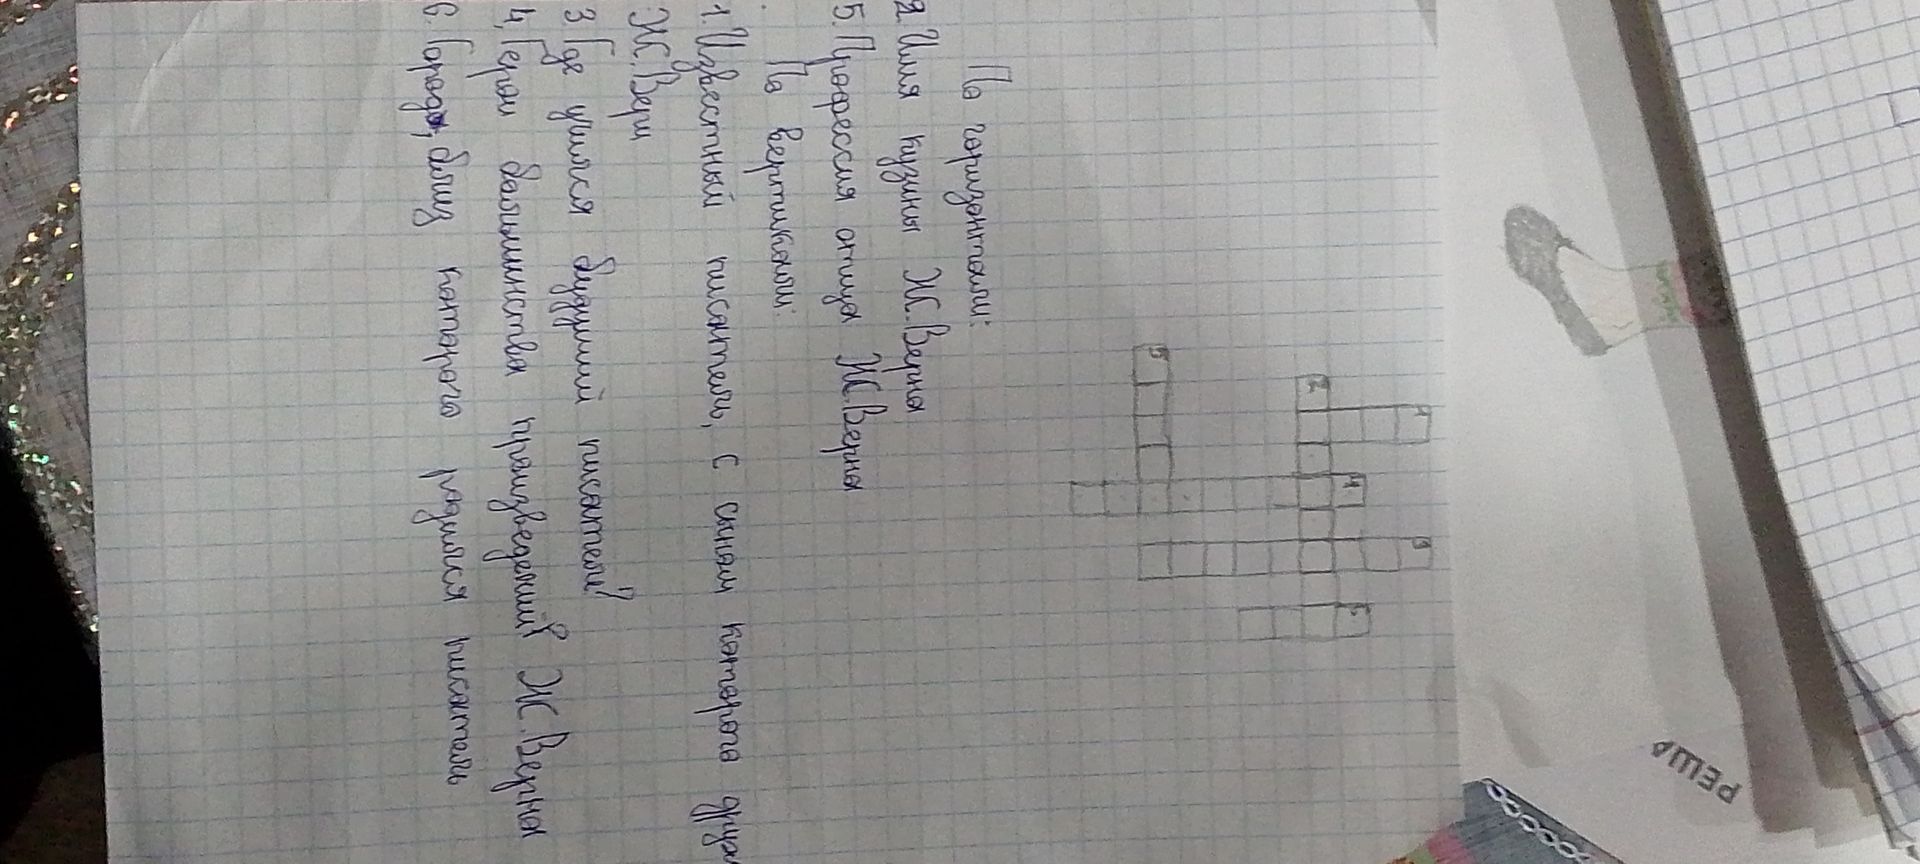 По горизонтали:
2. Имя кузины Ж.Верна
5. Профессия отца Ж.Верна
По вертикали:
1. Известный писатель, с сыном которого
Ж.Верн
3 Где учился будущий писатель?
4, Герои большинства произведений Ж.Верна
6. Город, близ которого родился писатель
2
4
3
5
РЕША